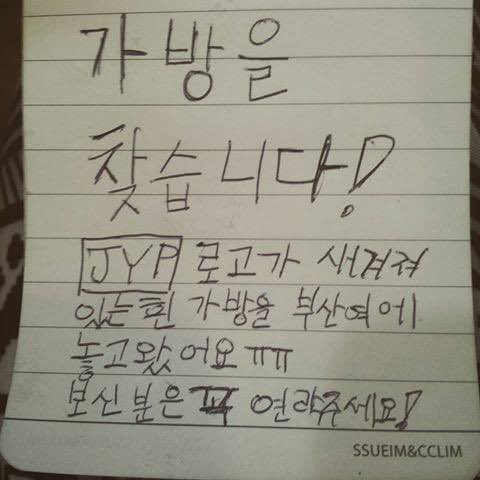 가방을
찾습니다!
JYP 로고가 새겨져
있는 흰 가방을 부산역에
놓고 왔어요 ㅠㅠ
보신 분은 꼭 연락주세요!
SSUEIM&CCLIM